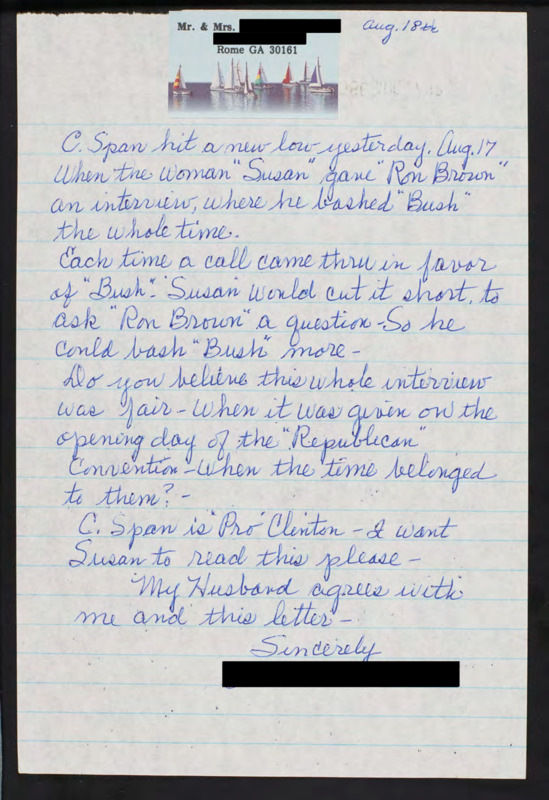 Mr. & Mrs.
Rome GA 30161
Aug. 18th
C. Span hit a new low yesterday. Aug. 17
When the woman "Susan", gave "Ron Brown"
an interview, where he bashed "Bush"
the whole time.
Each time a call came thru in favor
of "Bush". "Susan" would cut it short, to
ask "Ron Brown" a question - So he
could bash "Bush" more -
Do you believe this whole interview
was fair - When it was given on the
opening day of the "Republican"
Convention - When the time belonged
to them? -
C. Span is "Pro" Clinton - I want
Susan to read this please -
My Husband agrees with
me and this letter -
Sincerely